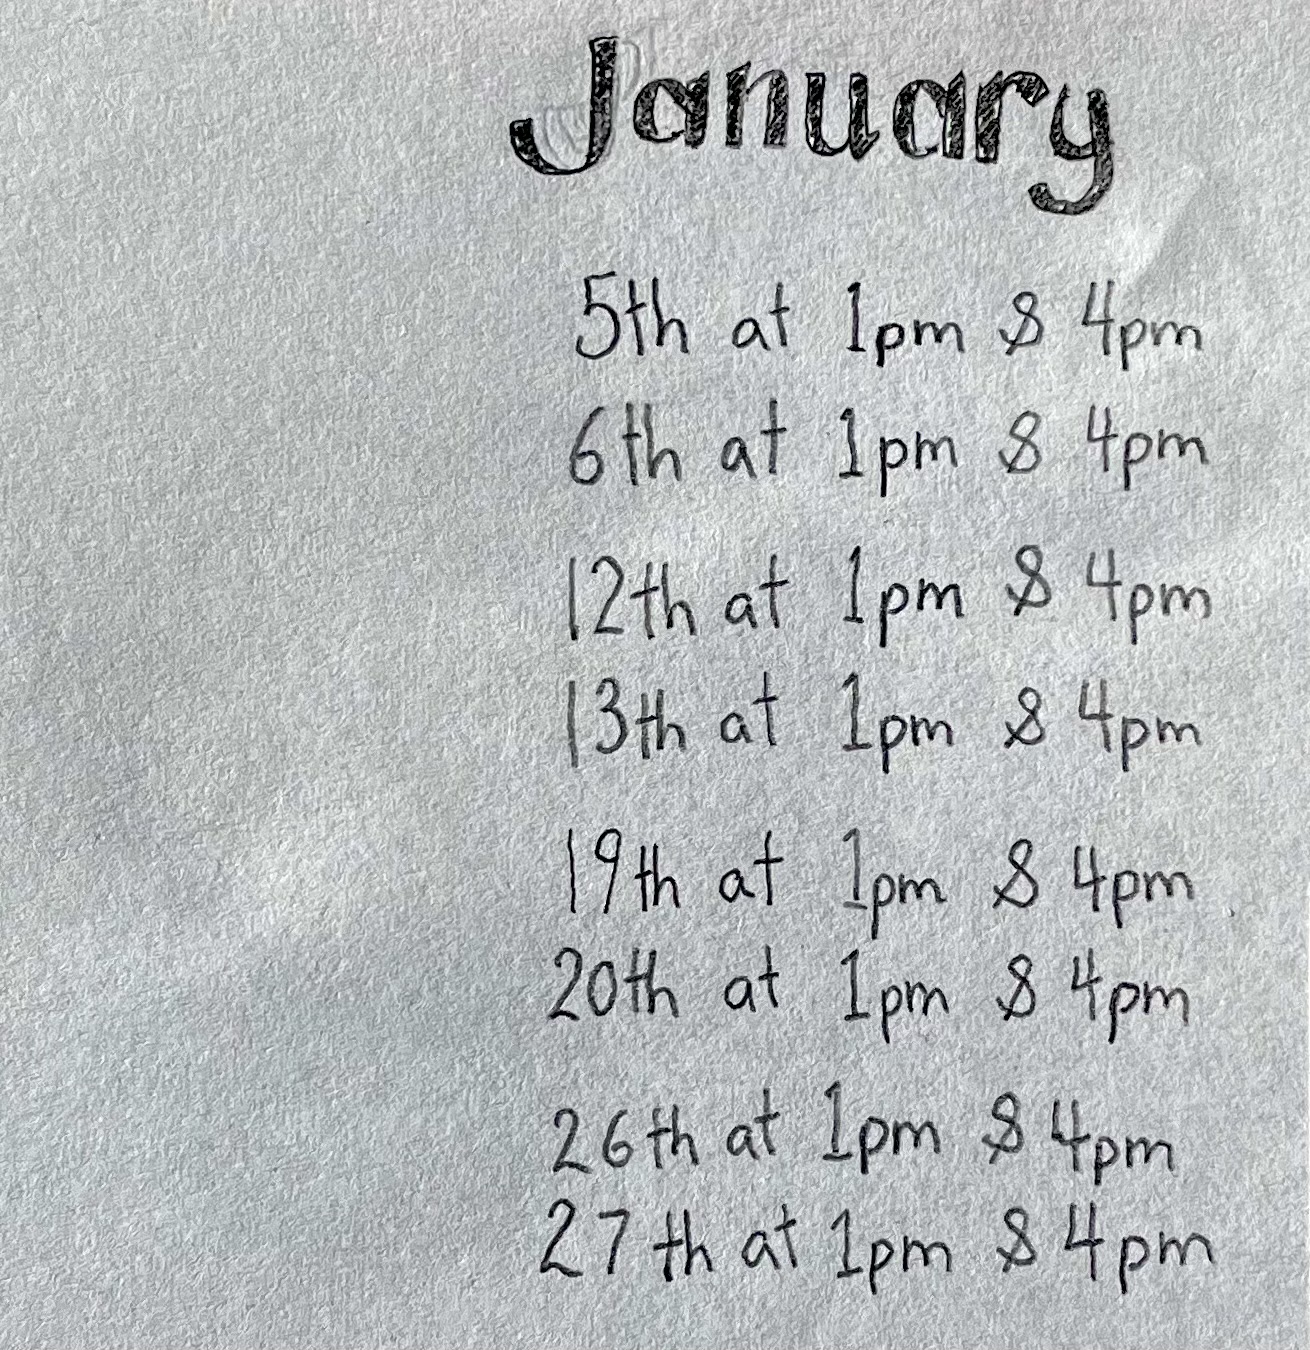 January
5th at 1pm & 4pm
6th at 1pm & 4pm
12th at 1pm & 4pm
13th at 1pm & 4pm
19th at 1pm & 4pm
20th at 1pm & 4pm
26th at 1pm & 4pm
27th at 1pm & 4pm